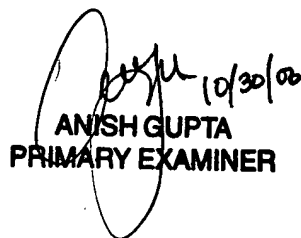 10/30/06
ANISH GUPTA
PRIMARY EXAMINER